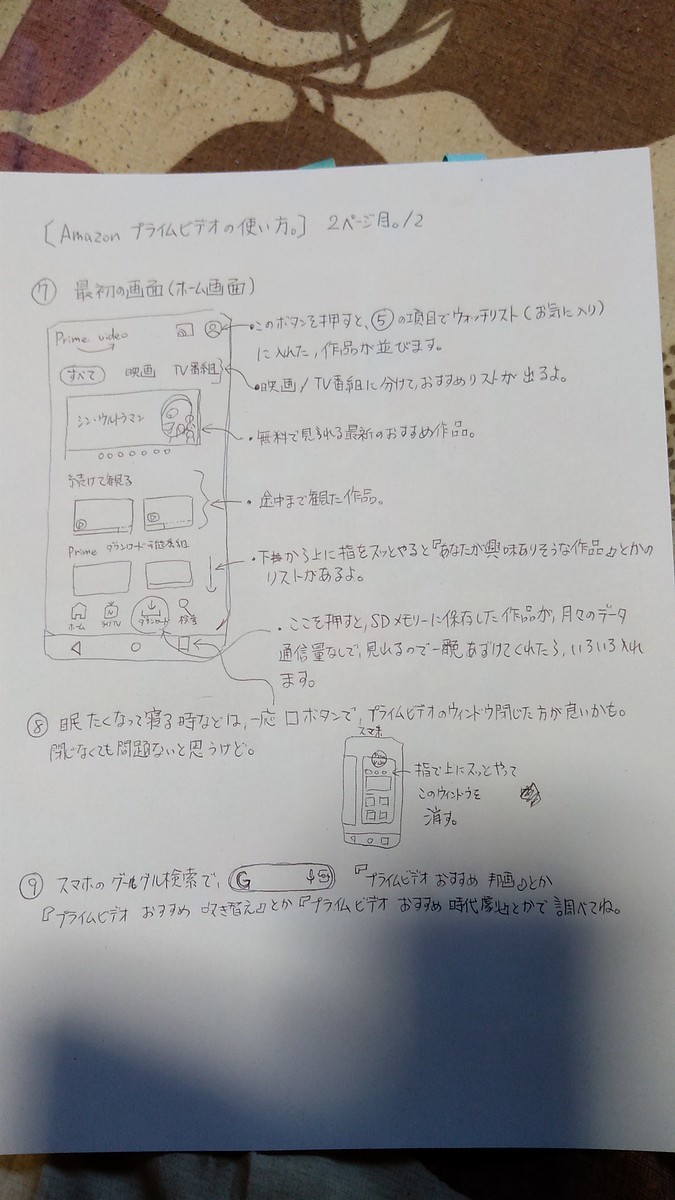 [Amazon プライムビデオの使い方。] 2ページ目。/2
⑦ 最初の画面(ホーム画面)
Prime video
すべて 映画 TV番組
シン・ウルトラマン
続けて観る
Prime ダウンロード可能番組
ホーム ライブTV ダウンロード 検索
・このボタンを押すと、⑤の項目でウォッチリスト(お気に入り)
に入れた、作品が並びます。
・映画/TV番組に分けて、おすすめリストが出るよ。
・無料で見られる最新のおすすめ作品。
・途中まで観た作品。
・下から上に指をスッとやると『あなたが興味ありそうな作品』とかの
リストがあるよ。
・ここを押すと、SDメモリーに保存した作品が、月々のデータ
通信量なしで、見れるので一晩あずけてくれたら、いろいろ入れ
ます。
⑧ 眠たくなって寝る時などは、一応 口ボタンで、プライムビデオのウィンドウ閉じた方が良いかも。
閉じなくても問題ないと思うけど。
スマホ
指で上にスッとやって
このウィンドウを
消す。
⑨ スマホのグーグル検索で、 G 『プライムビデオ おすすめ 邦画』とか
『プライムビデオ おすすめ 吹き替え』とか『プライムビデオ おすすめ 時代劇』とかで調べてね。